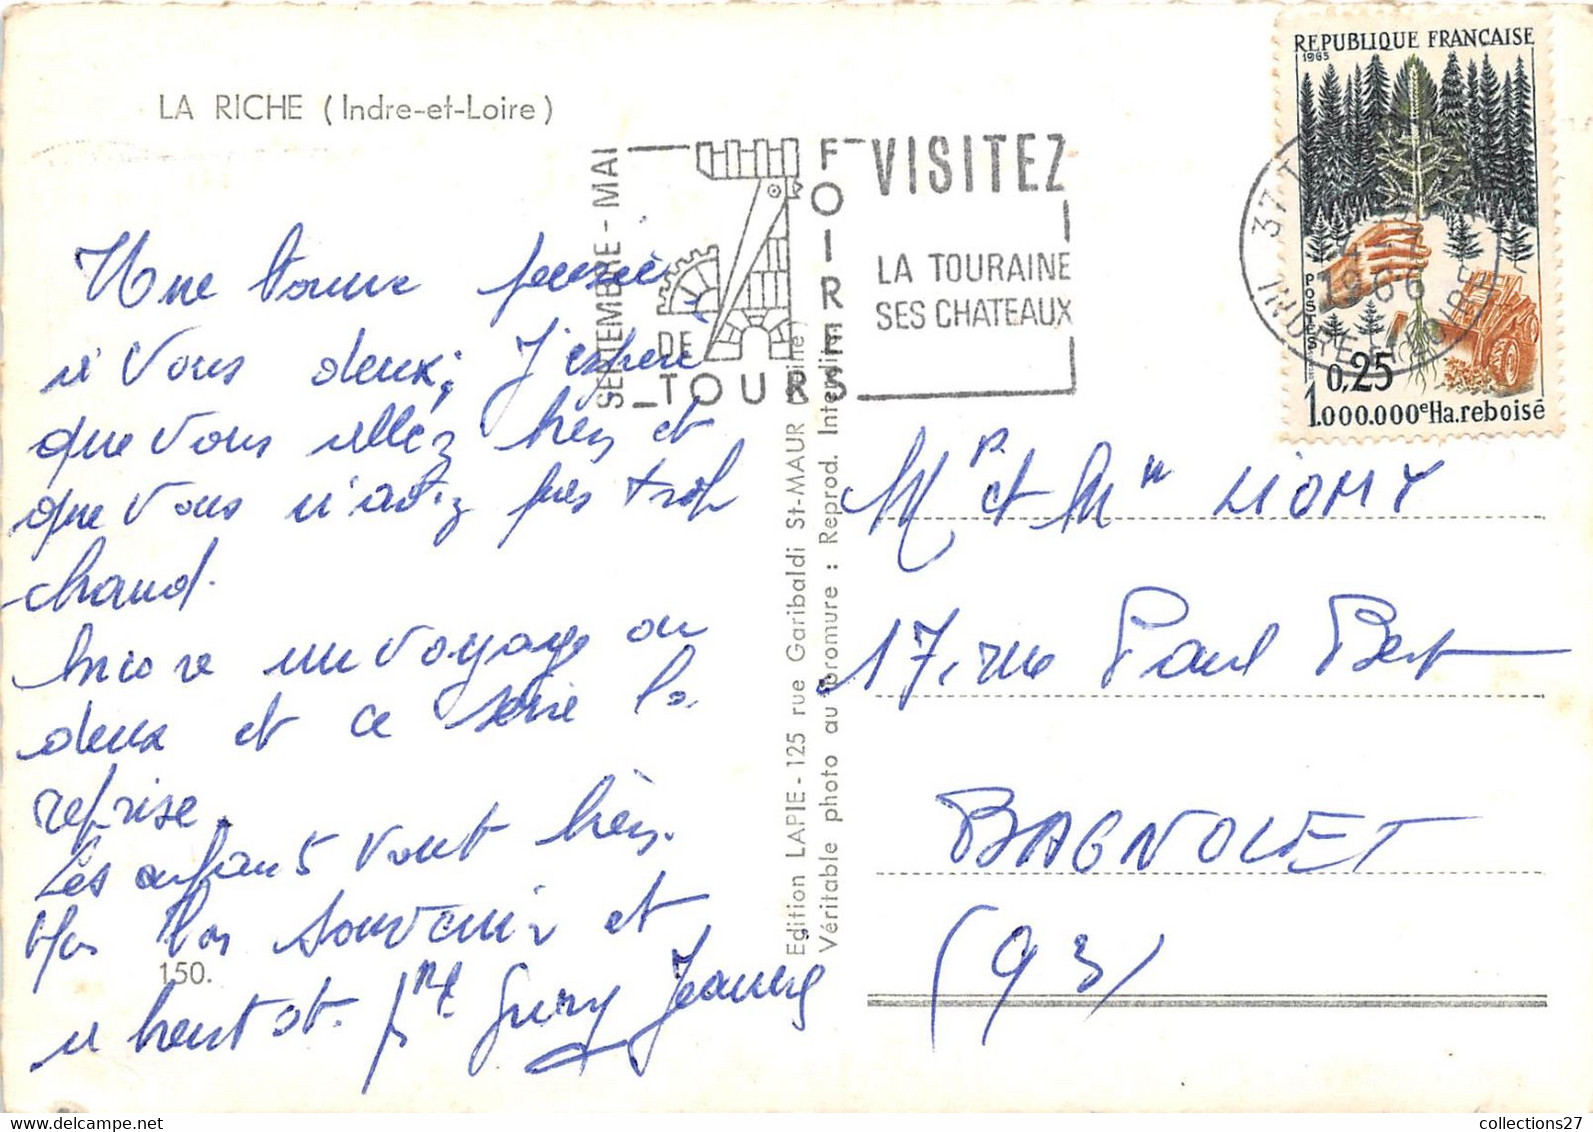 LA RICHE (Indre-et-Loire)
SEPTEMBRE - MAI
FOIRES
DE
TOURS
VISITEZ
LA TOURAINE
SES CHATEAUX
REPUBLIQUE FRANÇAISE
1965
POSTES
0,25
1.000.000e Ha. reboisé
37 T
1966
INDRE ET LOIRE
Une bonne pensée
à vous deux, J'espère
que vous allez bien et
que vous n'avez pas trop
chaud.
Encore un voyage ou
deux et ce sera la
reprise.
Les enfants vont bien.
Mon bon souvenir et
à bientôt. Gury Jeanne
150.
Edition LAPIE - 125 rue Garibaldi St-MAUR (Seine)
Véritable photo au bromure : Reprod. Interdite
Mr et Mm LIOMY
17, rue Paul Bert
BAGNOLET
(93)
collections27